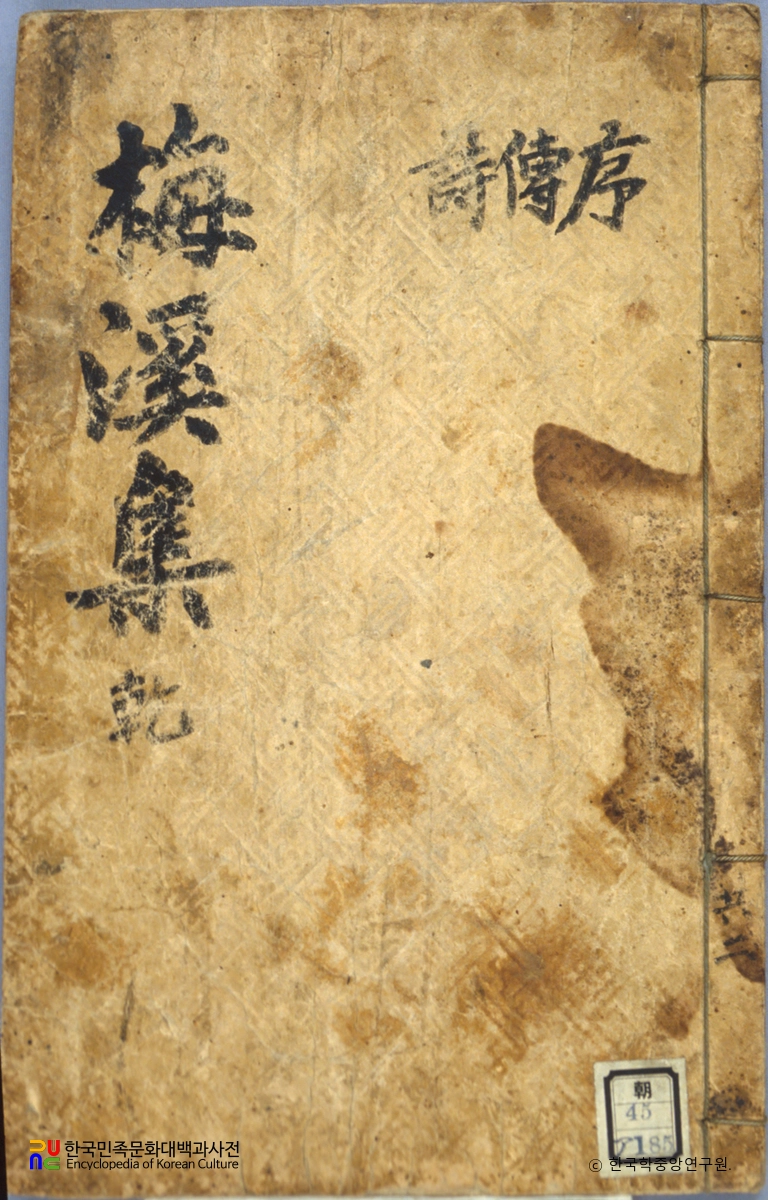 序傳詩
梅溪集 乾
共二
朝
45
ア185
한국민족문화대백과사전
Encyclopedia of Korean Culture
© 한국학중앙연구원.